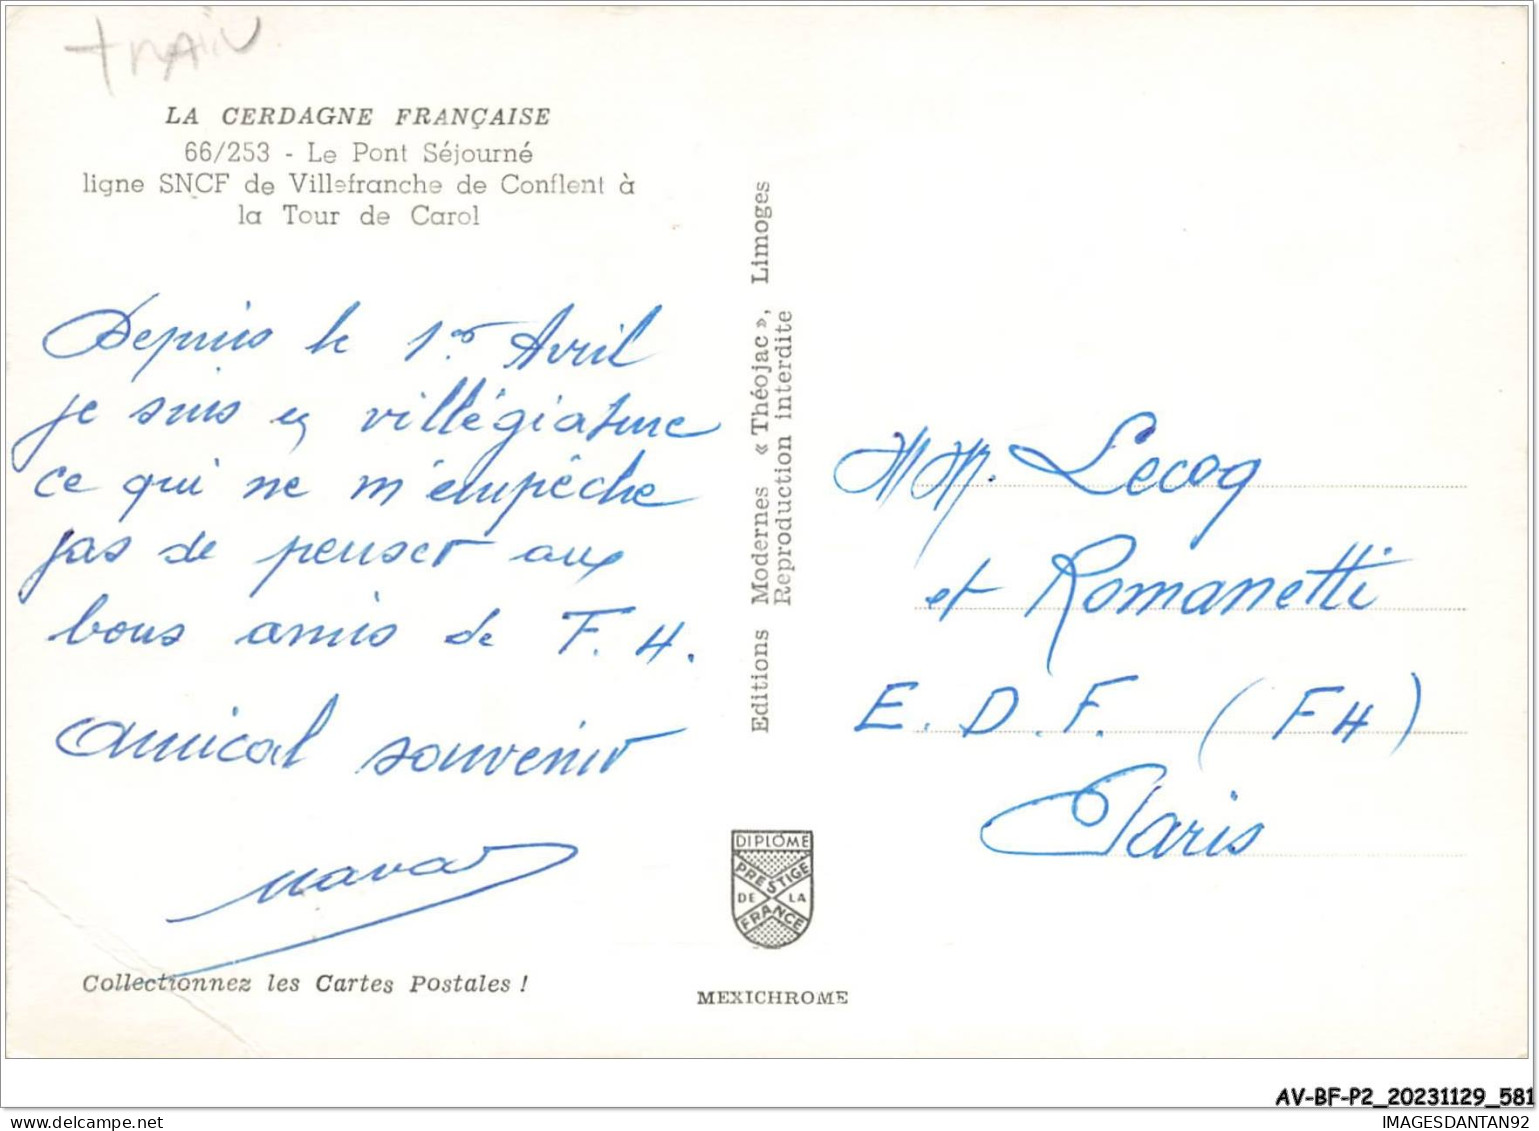 train
LA CERDAGNE FRANÇAISE
66/253 - Le Pont Séjourné
ligne SNCF de Villefranche de Conflent à
la Tour de Carol
Depuis le 1er Avril
je suis en villégiature
ce qui ne m'empêche
pas de penser aux
bons amis de F.H.
Amical souvenir
Collectionnez les Cartes Postales !
Editions Modernes « Théojac », Limoges
Reproduction interdite
DIPLÔME
PRESTIGE
DE LA
FRANCE
MEXICHROME
MM. Lecoq
et Romanetti
E.D.F. (FH)
Paris
AV-BF-P2_20231129_581
IMAGESDANTAN92